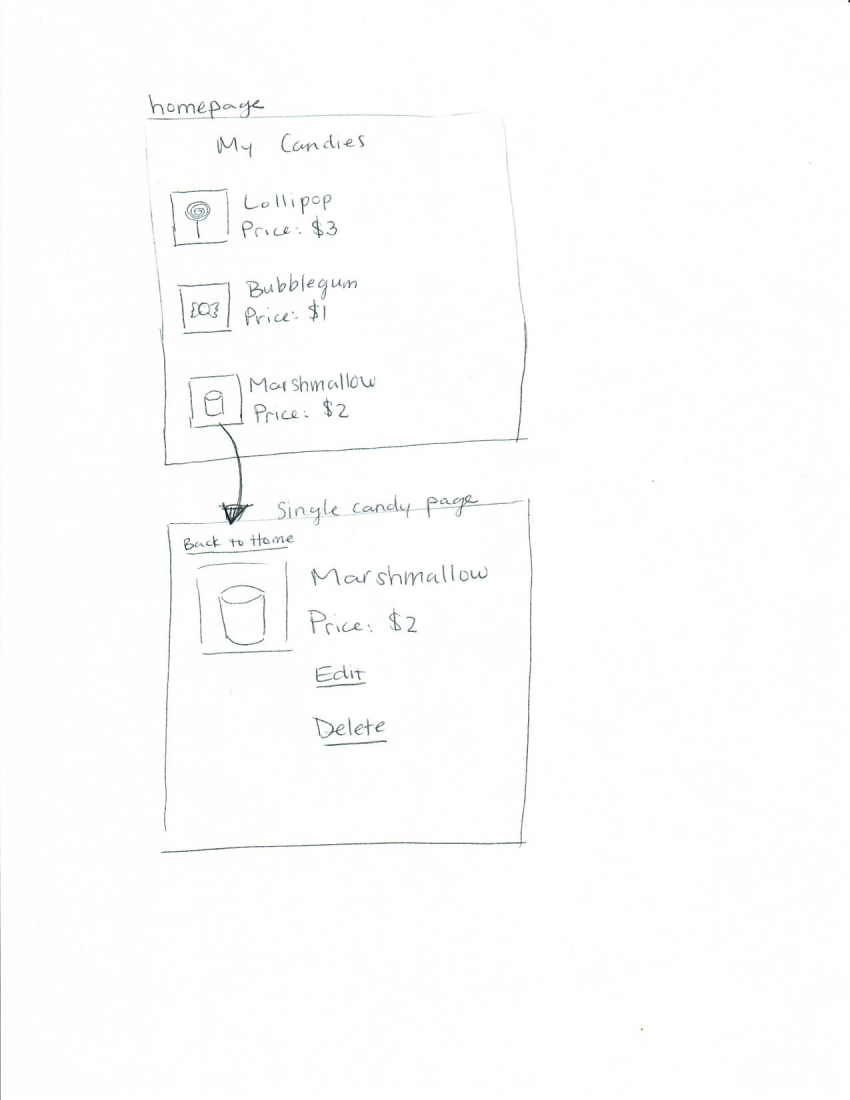 homepage
My Candies
Lollipop
Price: $3
Bubblegum
Price: $1
Marshmallow
Price: $2
Single candy page
Back to Home
Marshmallow
Price: $2
Edit
Delete